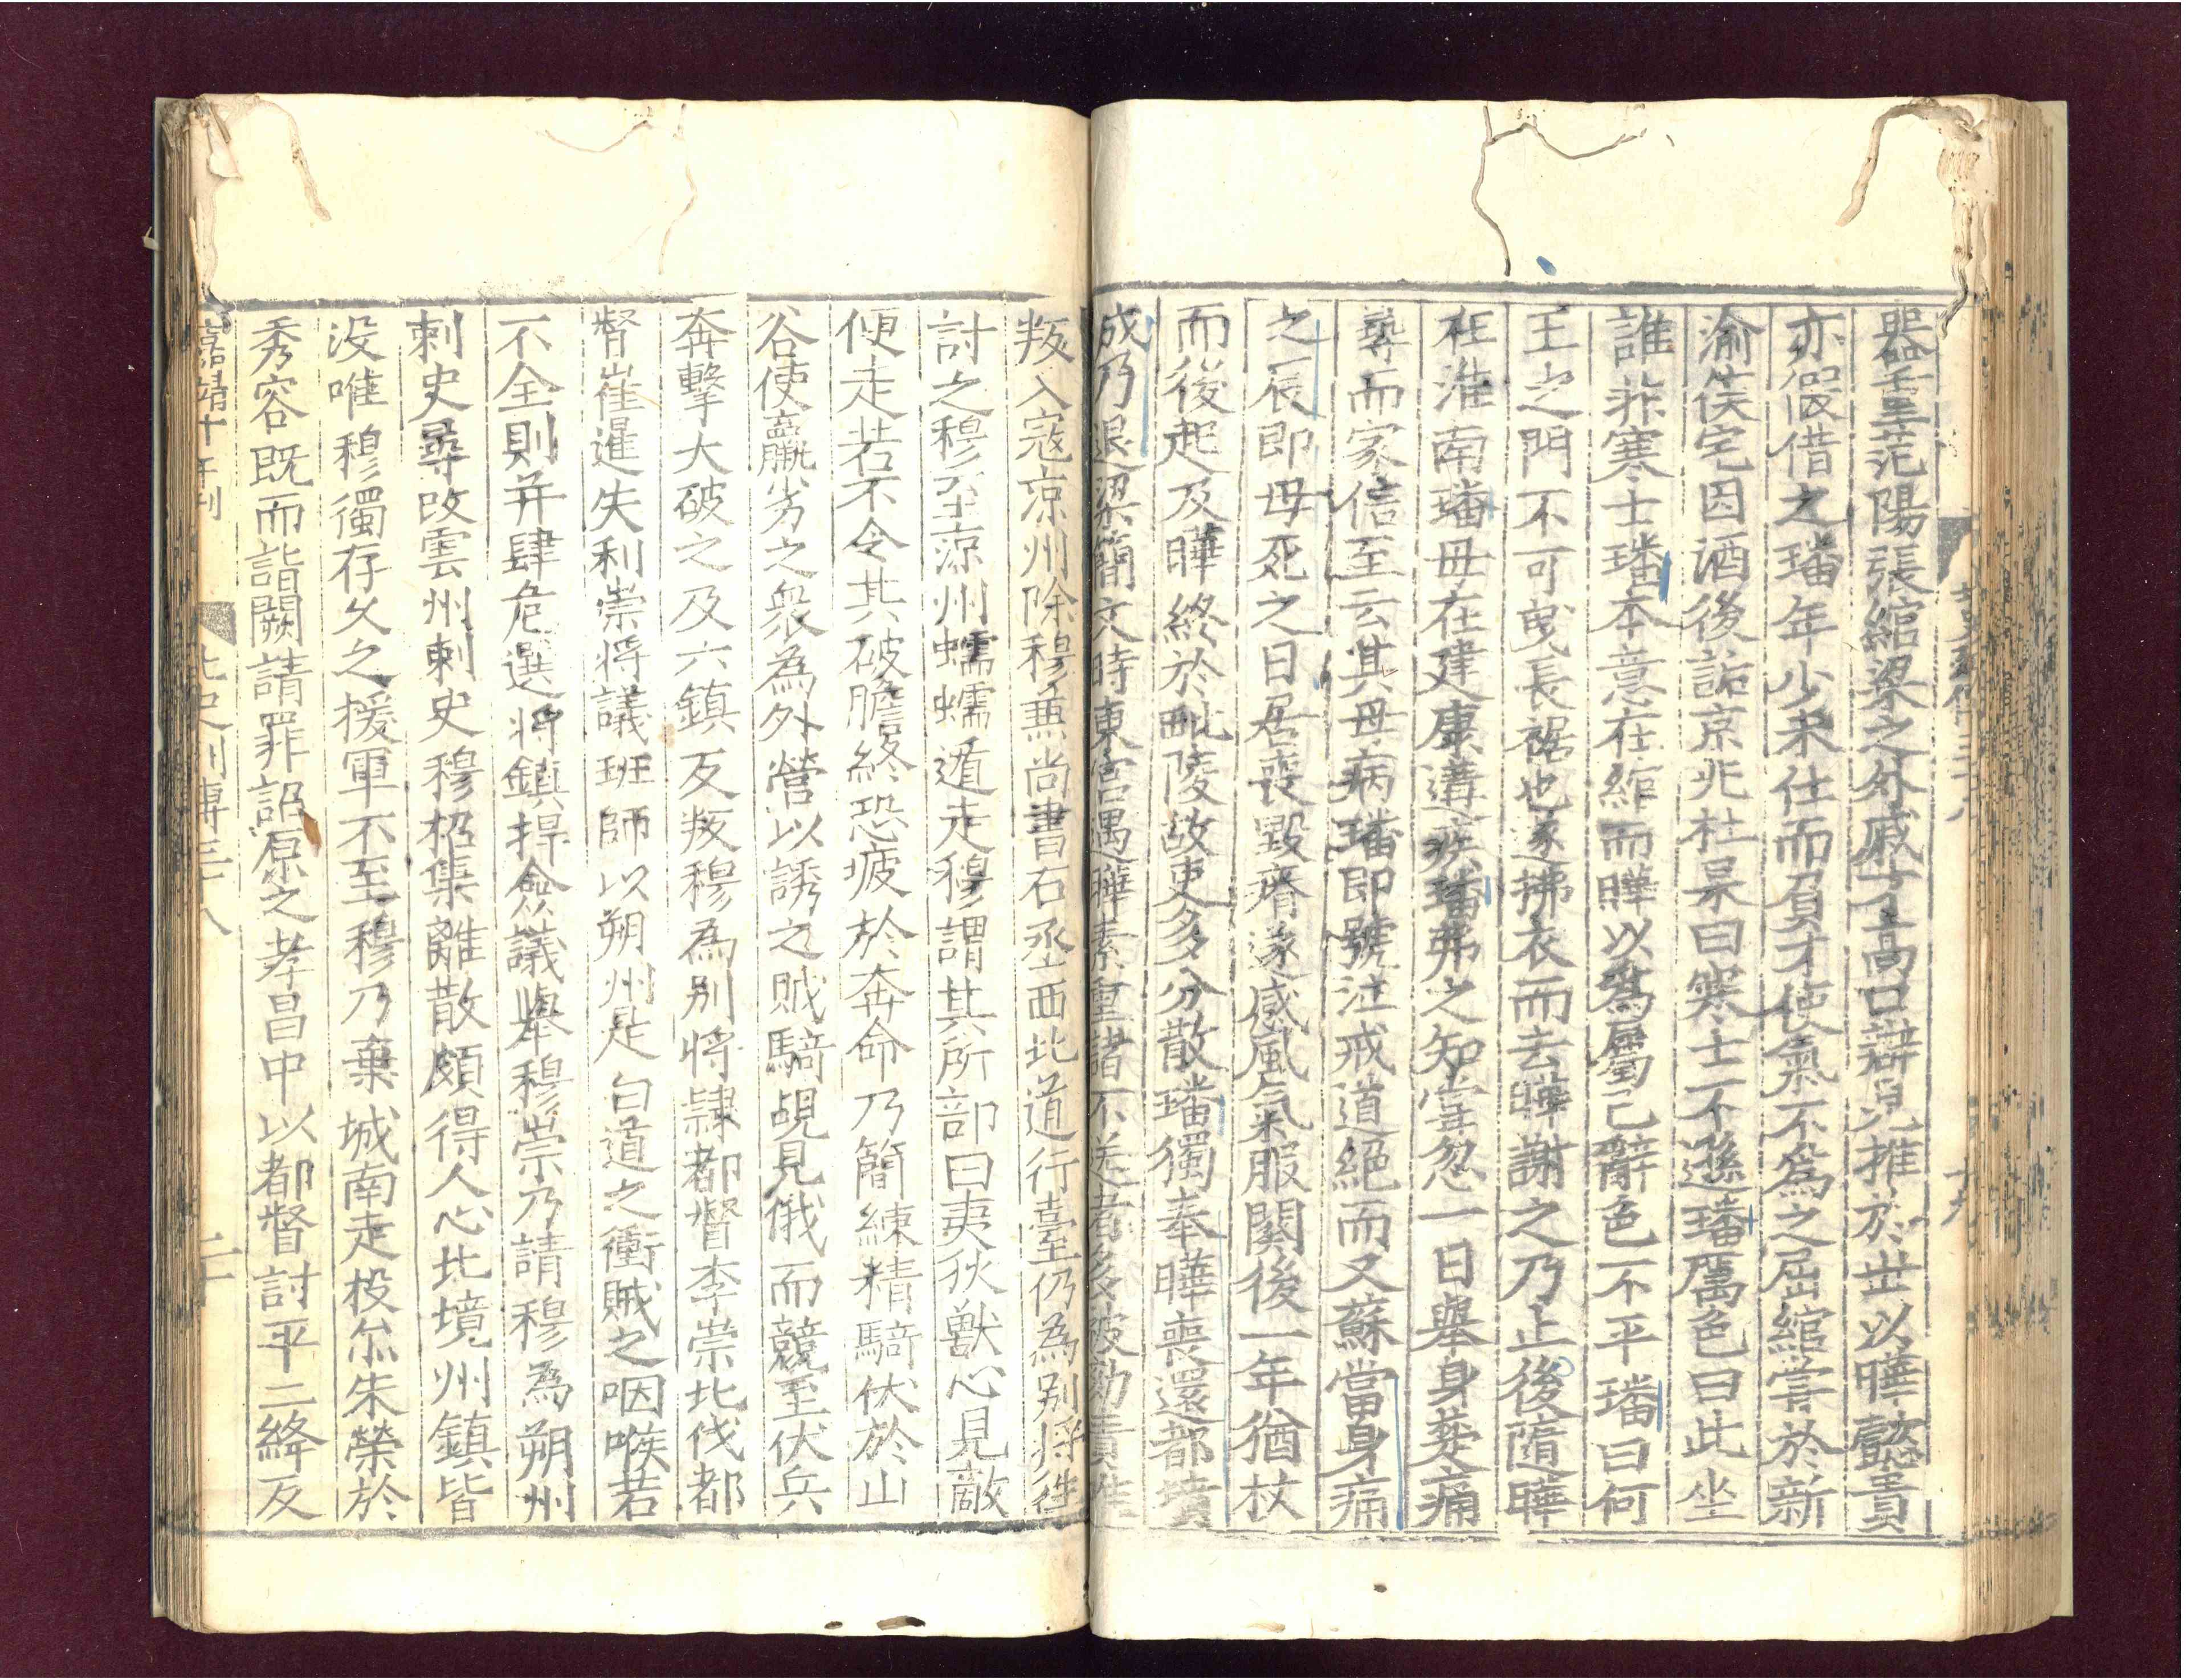 器重范陽張綰梁之外戚才高口辯見推於世以曄懿貴
亦假借之璠年少未仕而負才使氣不爲之屈綰嘗於新
渝侯宅因酒後詬京兆杜杲曰寒士不遜璠厲色曰此坐
誰非寒士璠本意在綰而曄以爲屬己辭色不平璠曰何
王之門不可曳長裾也遂拂衣而去曄謝之乃止後隨曄
在淮南璠母在建康遘疾璠弗之知嘗忽一日舉身楚痛
尋而家信至云其母病璠即號泣戒道絕而又蘇當身痛
之辰即母死之日居喪毀瘠遂感風氣服闋後一年猶杖
而後起及曄終於毗陵故吏多分散璠獨奉曄喪還都墳
成乃退梁簡文時東宮遇曄素重諸不送者多被劾責唯
北史列傳三十八
十九
叛入寇凉州除穆兼尚書右丞西北道行臺仍為別將往
討之穆至涼州蠕蠕遁走穆謂其所部曰夷狄獸心見敵
便走若不令其破膽終恐疲於奔命乃簡練精騎伏於山
谷使羸劣之衆為外營以誘之賊騎覘見俄而競至伏兵
奔擊大破之及六鎮反叛穆為別將隷都督李崇北伐都
督崔暹失利崇將議班師以朔州是白道之衝賊之咽喉若
不全則并肆危選將鎮捍僉議舉穆崇乃請穆為朔州
刺史尋改雲州刺史穆招集離散頗得人心北境州鎮皆
没唯穆獨存久之援軍不至穆乃棄城南走投尒朱榮於
秀容既而詣闕請罪詔原之孝昌中以都督討平二絳反
嘉靖十年刊
北史列傳三十八
二十